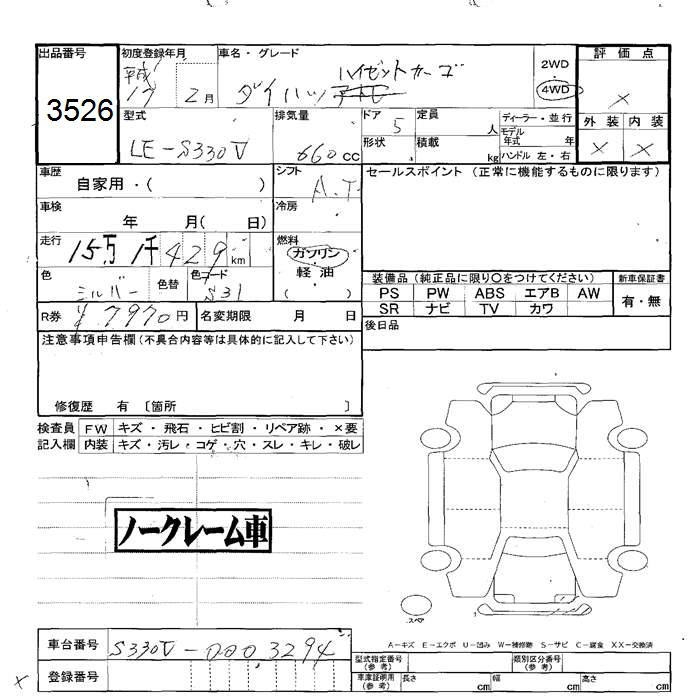 出品番号 3526
初度登録年月 平成 17 2月
車名・グレード ダイハツ ハイゼットカーゴ
2WD 4WD
評価点 ×
外装 内装
× ×
型式 LE-S330V
排気量 660cc
ドア 5 定員 人
形状 積載 kg
ディーラー・並行
モデル年式 年
ハンドル 左・右
車歴 自家用・( )
シフト A.T
セールスポイント (正常に機能するものに限ります)
車検 年 月( 日)
冷房
走行 15万1千429km
燃料 ガソリン
軽油
( )
色 シルバー 色替 色コード S31
装備品(純正品に限り○をつけてください) 新車保証書
PS PW ABS エアB AW 有・無
SR ナビ TV カワ
R券 ¥7970円 名変期限 月 日
後日品
注意事項申告欄(不具合内容等は具体的に記入して下さい)
修復歴 有 〔箇所 〕
検査員 FW キズ・飛石・ヒビ割・リペア跡・×要
記入欄 内装 キズ・汚レ・コゲ・穴・スレ・キレ・破レ
ノークレーム車
スペア
A-キズ E-エクボ U-凹み W-補修跡 S-サビ C-腐食 XX-交換済
車台番号 S330V-0003294
登録番号
型式指定番号(参考) 類別区分番号(参考)
車庫証明用(参考) 長さ cm 幅 cm 高さ cm
×